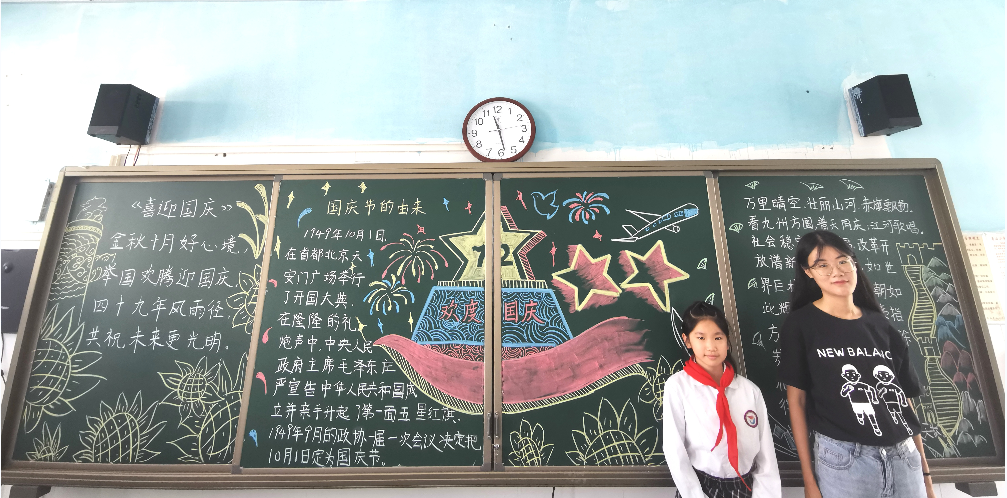 《喜迎国庆》
金秋十月好心境，
举国欢腾迎国庆，
四十九年风雨径，
共祝未来更光明。
国庆节的由来
1949年10月1日，
在首都北京天
安门广场举行
了开国大典，
在隆隆的礼
炮声中，中央人民
政府主席毛泽东庄
严宣告中华人民共和国成
立并亲手升起了第一面五星红旗。
1949年9月的政协一届一次会议决定把
10月1日定为国庆节。
72
欢度国庆
万里晴空，壮丽山河，赤旗飘扬。
看九州方圆，普天同庆，江河歌唱。
社会
改革开
放
如世
界
朝如
指
方
NEW BALANC
12
1
2
3
4
5
6
7
8
9
10
11